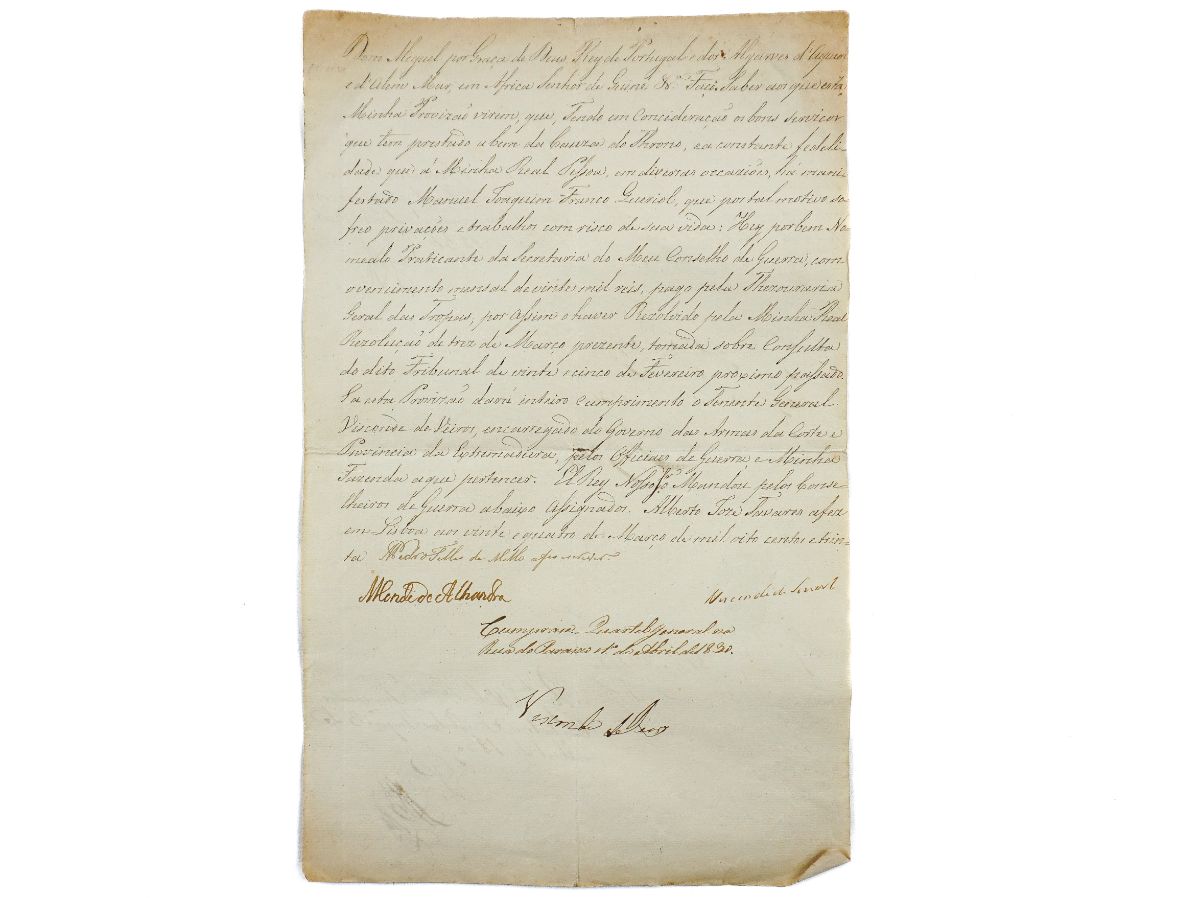 Dom Miguel por Graça de Deus Rey de Portugal e dos Algarves d'Aquem
e d'Alem Mar, em Africa Senhor de Guiné &ª Faço Saber aos que esta
Minha Provizão virem, que, Tendo em Concideração os bons serviços
que tem prestado a bem da Cauza do Throno, e a constante fedeli-
dade que á Minha Real Pessoa, em diversas occaziões, há mani-
festado Manuel Joaquim Franco Queriol, que por tal motivo so-
freo privações e trabalhos com risco de sua vida: Hey por bem No-
mealo Praticante da Secretaria do Meu Conselho de Guerra, com
o vencimento mensal de vinte mil reis, pago pela Thezouraria
Geral das Tropas, por assim o haver Rezolvido pela Minha Real
Rezolução de trez de Março prezente, tomada sobre Consulta
do dito Tribunal de vinte e cinco de Fevereiro proximo passado.
E a esta Provizão dará inteiro cumprimento o Tenente General
Visconde de Veiros, encarregado do Governo das Armas da Corte e
Provincia da Extremadura, pelos Officiaes de Guerra e Minha
Fazenda a que pertencer. El Rey Nosso Sʳ Mandou pelos Conse-
lheiros de Guerra abaixo assignados. Alberto Joze Tavares a fez
em Lisboa aos vinte e quatro de Março de mil oito centos e trin-
ta Pedro Telles de Mello a fes escrever
Conde de Alhandra
Visconde de
Cumprase Quartel General na
Rua do Paraizo 1º de Abril de 1830.
Visconde de Veiros